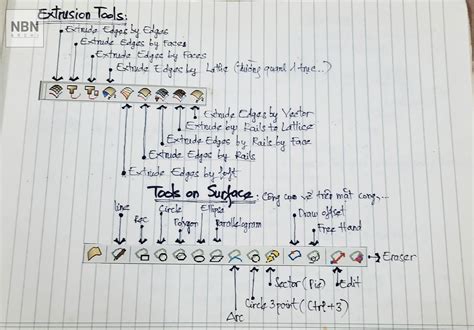 NBN
Extrusion Tools:
Extrude Edges by Edges
Extrude Edges by Faces
Extrude Edges by Faces
Extrude Edges by Lathe (đường quanh 1 trục...)
Extrude Edges by Vector
Extrude by Rails to Lattice
Extrude Edges by Rails by Face
Extrude Edges by Rails
Extrude Edges by Loft
Tools on Surface: Công cụ vẽ trên mặt cong...
line
Rec
Circle
Polygon
Ellipse
Parallelogram
Draw offset
Free Hand
Eraser
Edit
Sector (Pie)
Circle 3 point (Ctrl+3)
Arc